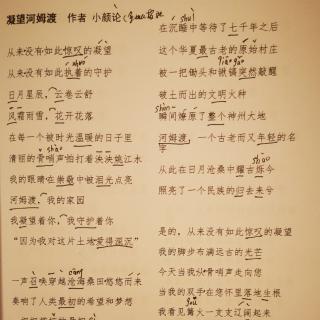 凝望河姆渡 作者 小颜论
从来没有如此惊叹的凝望
从来没有如此执着的守护
日月星辰，云卷云舒
风霜雨雪，花开花落
在每一个被时光温暖的日子里
清丽的骨哨声怕打着泱泱姚江水
我的眼睛在崇敬中被泪光点亮
河姆渡，我的家园
我凝望着你，我守护着你
“因为我对这片土地爱得深沉”
一声召唤穿越沧海桑田悠悠而来
奏响了人类最初的希望和梦想
在沉睡中等待了七千年之后
这个华夏最古老的原始村庄
被一把锄头和锹镐突然敲醒
破土而出的文明火种
瞬间燎原了整个神州大地
河姆渡，一个古老而又年轻的名
字
从此在日月沧桑中耀古烁今
照亮了一个民族的归去来兮
是的，从来没有如此惊叹的凝望
我的脚步布满远古的光芒
今天当我从骨哨声走向您
当我的双手在您怀里落地生根
我看见篝火一支支辽阔起来